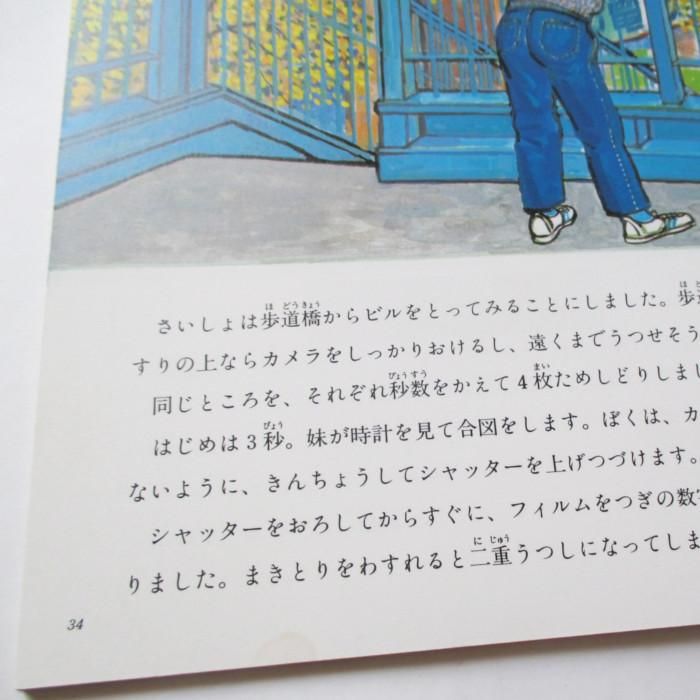 さいしょは歩道橋からビルをとってみることにしました。歩
すりの上ならカメラをしっかりおけるし、遠くまでうつせそう
同じところを、それぞれ秒数をかえて4枚ためしどりしまし
はじめは3秒。妹が時計を見て合図をします。ぼくは、カ
ないように、きんちょうしてシャッターを上げつづけます。
シャッターをおろしてからすぐに、フィルムをつぎの数字
りました。まきとりをわすれると二重うつしになってしま
34